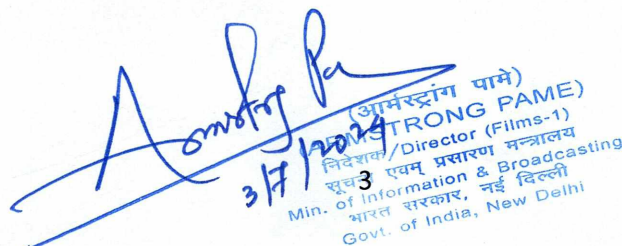 Armstrong Pa
3/7/2024
(आर्मस्ट्रांग पामे)
(ARMSTRONG PAME)
निदेशक/Director (Films-1)
सूचना एवम् प्रसारण मन्त्रालय
3
Min. of Information & Broadcasting
भारत सरकार, नई दिल्ली
Govt. of India, New Delhi